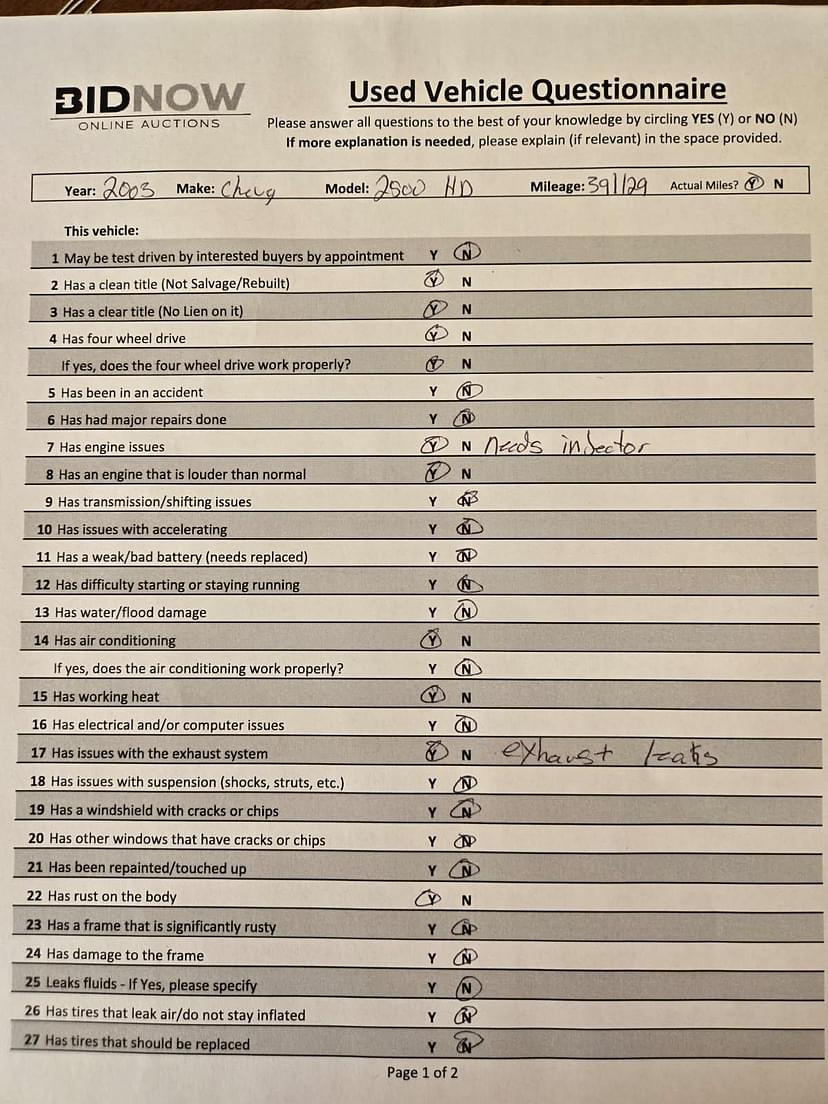 BIDNOW
ONLINE AUCTIONS
Used Vehicle Questionnaire
Please answer all questions to the best of your knowledge by circling YES (Y) or NO (N)
If more explanation is needed, please explain (if relevant) in the space provided.
Year: 2003 Make: Chevy Model: 2500 HD Mileage: 391129 Actual Miles? Y N
This vehicle:
1 May be test driven by interested buyers by appointment Y N
2 Has a clean title (Not Salvage/Rebuilt) Y N
3 Has a clear title (No Lien on it) Y N
4 Has four wheel drive Y N
If yes, does the four wheel drive work properly? Y N
5 Has been in an accident Y N
6 Has had major repairs done Y N
7 Has engine issues Y N needs injector
8 Has an engine that is louder than normal Y N
9 Has transmission/shifting issues Y N
10 Has issues with accelerating Y N
11 Has a weak/bad battery (needs replaced) Y N
12 Has difficulty starting or staying running Y N
13 Has water/flood damage Y N
14 Has air conditioning Y N
If yes, does the air conditioning work properly? Y N
15 Has working heat Y N
16 Has electrical and/or computer issues Y N
17 Has issues with the exhaust system Y N exhaust leaks
18 Has issues with suspension (shocks, struts, etc.) Y N
19 Has a windshield with cracks or chips Y N
20 Has other windows that have cracks or chips Y N
21 Has been repainted/touched up Y N
22 Has rust on the body Y N
23 Has a frame that is significantly rusty Y N
24 Has damage to the frame Y N
25 Leaks fluids - If Yes, please specify Y N
26 Has tires that leak air/do not stay inflated Y N
27 Has tires that should be replaced Y N
Page 1 of 2